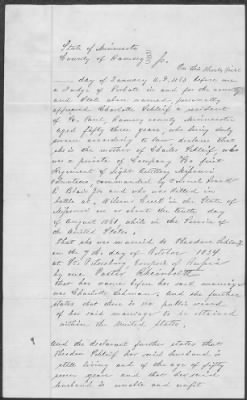 State of Minnesota
County of Ramsey } ss.
On this thirty first
day of January A.D. 1863 before me
a Judge of Probate in and for the county
and State above named, personally
appeared Charlotte a resident
of St. Paul, Ramsey county Minnesota
aged fifty three years, who being duly
sworn according to law declares that
she is the mother of Charles who
was a private of Company first
Regiment of Light Artillery Missouri
Volunteers commanded by Colonel
E. Blair Jr and who was killed in
battle at Wilsons Creek in the State of
Missouri on or about the tenth day
of August 1861, while in the Service of
the United States;
That she was married to Theodore
on the 7th day of October 1834
at St. Petersburg Empire of Russia
by one Pastor
that her name before her said marriage
was Charlotte and she further
states that there is no public record
of her said marriage to be obtained
within the United States.
And the declarant further states that
Theodore her said husband is
still living and of the age of fifty
years and that her said
husband is unable and unfit